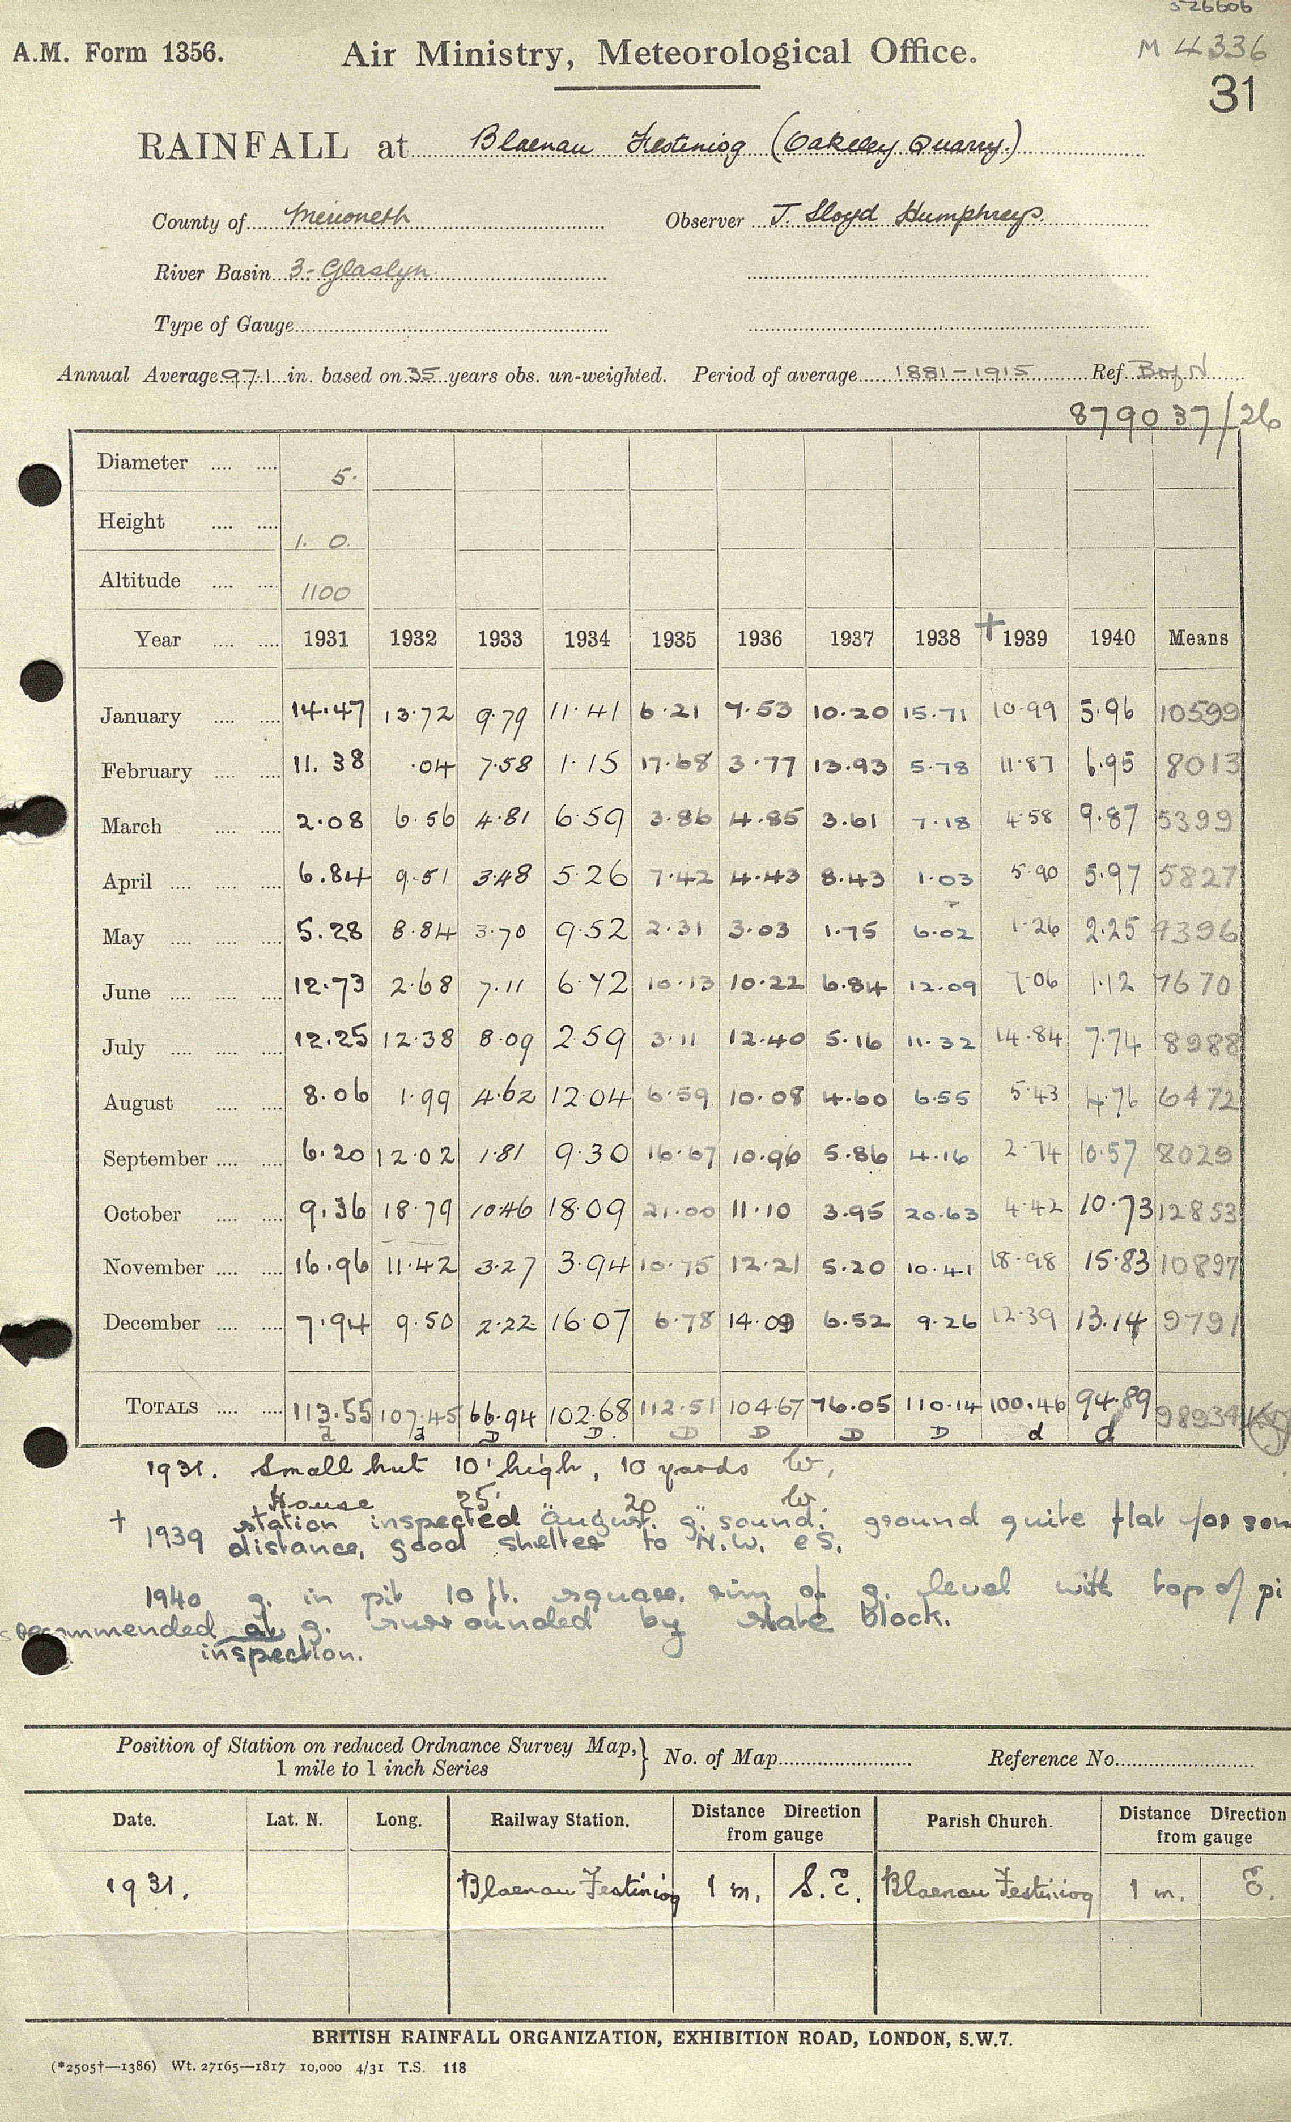 526606
A.M. Form 1356. Air Ministry, Meteorological Office. M 4336
31
RAINFALL at Blaenau Festiniog (Oakeley Quarry.)
County of Merioneth Observer J. Lloyd Humphreys.
River Basin 3. Glaslyn
Type of Gauge
Annual Average 97.1 in. based on 35 years obs. un-weighted. Period of average 1881-1915 Ref. B of N
879037/26
Diameter 5.
Height 1. 0.
Altitude 1100
Year 1931 1932 1933 1934 1935 1936 1937 1938 +1939 1940 Means
January 14.47 13.72 9.79 11.41 6.21 7.53 10.20 15.71 10.99 5.96 10599
February 11.38 .04 7.58 1.15 17.68 3.77 13.93 5.78 11.87 6.95 8013
March 2.08 6.56 4.81 6.59 3.86 4.85 3.61 7.18 4.58 9.87 5399
April 6.84 9.51 3.48 5.26 7.42 4.43 8.43 1.03 5.90 5.97 5827
May 5.28 8.84 3.70 9.52 2.31 3.03 1.75 6.02 1.26 2.25 4396
June 12.73 2.68 7.11 6.72 10.13 10.22 6.84 12.09 7.06 1.12 7670
July 12.25 12.38 8.09 2.59 3.11 12.40 5.16 11.32 14.84 7.74 8988
August 8.06 1.99 4.62 12.04 6.59 10.08 4.60 6.55 5.43 4.76 6472
September 6.20 12.02 1.81 9.30 16.67 10.96 5.86 4.16 2.74 10.57 8029
October 9.36 18.79 10.46 18.09 21.00 11.10 3.95 20.63 4.42 10.73 12853
November 16.96 11.42 3.27 3.94 10.75 12.21 5.20 10.41 18.98 15.83 10897
December 7.94 9.50 2.22 16.07 6.78 14.09 6.52 9.26 12.39 13.14 9791
TOTALS 113.55 107.45 66.94 102.68 112.51 104.67 76.05 110.14 100.46 94.89 98934
d d D D D D D D d d
1931. Small hut 10' high, 10 yards W,
House 25' 20 W.
† 1939 station inspected August. g. sound. ground quite flat for som
distance, good shelter to N.W. & S.
1940 g. in pit 10 ft. square. rim of g. level with top of pi
recommended at g. surrounded by slate block.
inspection.
Position of Station on reduced Ordnance Survey Map, 1 mile to 1 inch Series } No. of Map Reference No.
Date. Lat. N. Long. Railway Station. Distance Direction from gauge Parish Church. Distance Direction from gauge
1931. Blaenau Festiniog 1 m. S.E. Blaenau Festiniog 1 m. E.
BRITISH RAINFALL ORGANIZATION, EXHIBITION ROAD, LONDON, S.W.7.
(*2505†—1386) Wt. 27165—1817 10,000 4/31 T.S. 118